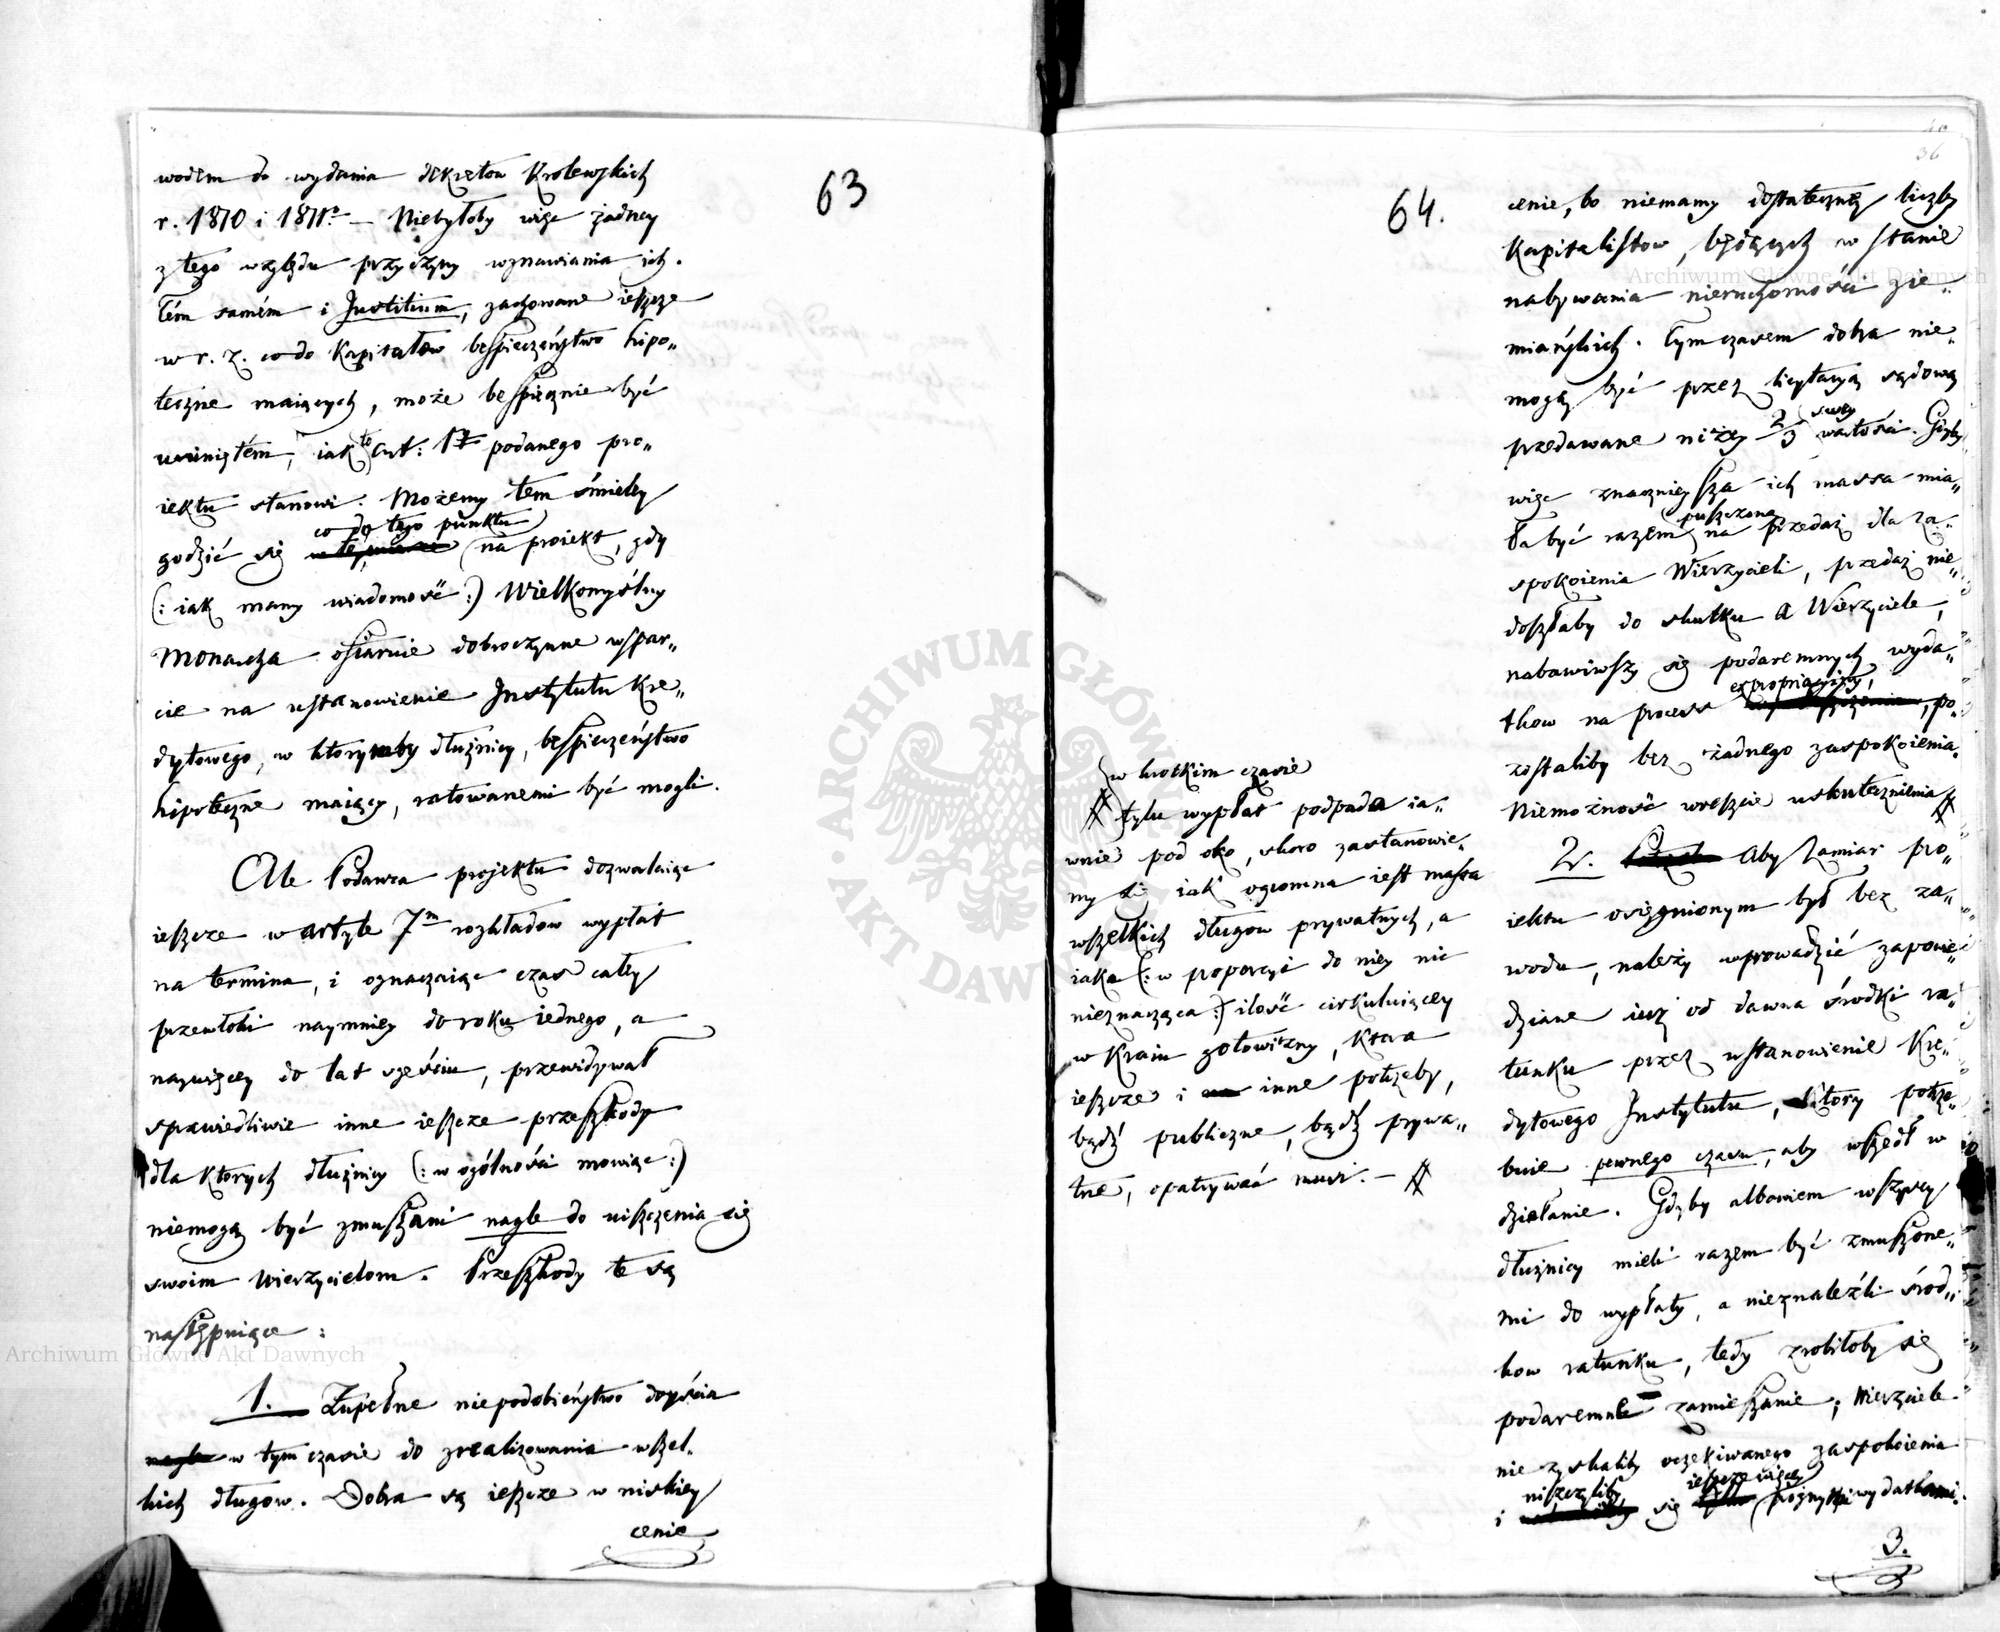 63
wodem do wydania dekretow Krolewskich
r. 1810 i 1811º — Niebyłoby więc żadney
z tego względu przyczyny wznawiania ich.
Tém samém i Justitium, zachowane ieszcze
w r. z. co do Kapitałow bespieczeństwo hipo„
teczne maiących, może bespiecznie być
usuniętém, iak to art: 17 podanego pro„
iektu stanowi. Możemy tem śmieley
co do tego punktu
godzić się na proiekt, gdy
(: iak mamy wiadomość :) Wielkomyślny
Monarcha ofiaruie dobroczynne wspar„
cie na ustanowienie Instytutu Kre„
dytowego, w którymby dłużnicy, bespieczeństwo
hipoteczne maiący, ratowanemi być mogli.
Ale Podawca projektu dozwalaiąc
ieszcze w artyle 7m rozkładow wypłat
na termina, i oznaczaiąc czas cały
przewłoki naymniey do roku iednego, a
naywięcey do lat sześciu, przewidywał
sprawiedliwie inne ieszcze przeszkody
dla których dłużnicy (: w ogólności mowiąc :)
niemogą być zmuszani nagle do uiszczenia się
swoim Wierzycielom. Przeszkody te są
następuiące :
1. Zupełne niepodobieństwo doyścia
nagle w tym czasie do zrealizowania wszel„
kich długow. Dobra są ieszcze w niskiey
cenie
36
64.
cenie, bo niemamy dostateczney liczby
Kapitalistow, będących w stanie
nabywania nieruchomości zie„
miańskich. Tymczasem dobra nie„
mogą być przez licytacyą sądową
swey
przedawane niżey 2/3 wartości. Gdyby
więc znacznieysza ich massa mia„
puszczona
ła być razem na przedaż dla za„
spokoienia Wierzycieli, przedaż nie„
doszłaby do skutku a Wierzyciele,
nabawiwszy się podaremnych wyda„
expropriacyiny,
tkow na process , po„
zostaliby bez żadnego zaspokoienia.
Niemożność wreszcie uskutecznienia #
w krotkim czasie
# tylu wypłat podpada ia„
wnie pod oko, skoro zastanowie„
my się iak ogromna iest massa
wszelkich długow prywatnych, a
iaka (: w proporcyi do niey nic
nieznacząca :) ilość cirkuluiącey
w Kraiu gotowizny, Ktora
ieszcze i inne potrzeby,
bądź publiczne, bądź prywa„
tne, opatrywać musi. — #
2. Aby Zamiar pro„
iektu osięgnionym był bez za„
wodu, należy wprowadzić zapowie„
dziane iuż od dawna środki ra„
tunku przez ustanowienie Kre„
dytowego Instytutu, Ktory potrze„
buie pewnego czasu, aby wszedł w
działanie. Gdyby albowiem wszyscy
dłużnicy mieli razem być zmuszone„
mi do wypłaty, a nieznaleźli środ„
kow ratunku, tedy zrobiłoby się
podaremne zamieszanie; Wierzciele
nie zyskaliby oczekiwanego zaspokoienia
niszczyliby ieszcze więcey
i się proznymi wydatkami.
3.